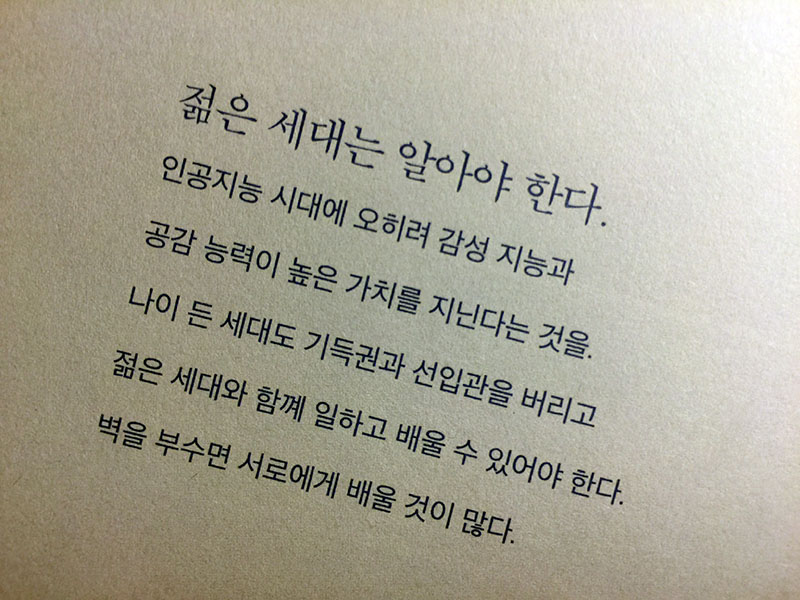 젊은 세대는 알아야 한다.
인공지능 시대에 오히려 감성 지능과
공감 능력이 높은 가치를 지닌다는 것을.
나이 든 세대도 기득권과 선입관을 버리고
젊은 세대와 함꼐 일하고 배울 수 있어야 한다.
벽을 부수면 서로에게 배울 것이 많다.